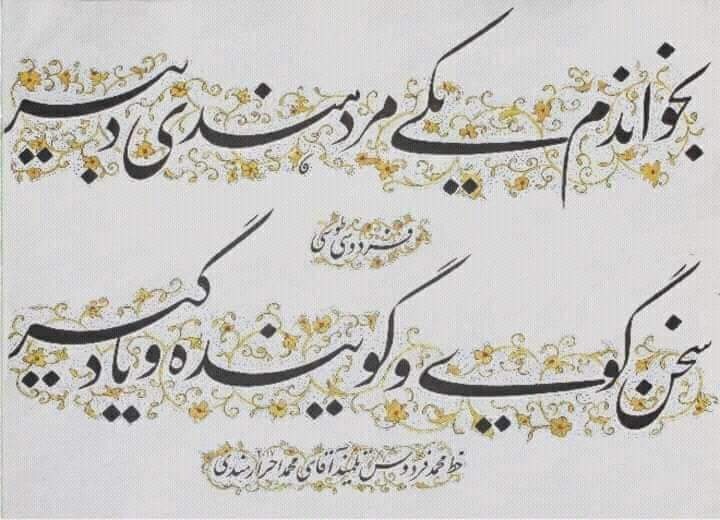 بخواندم یکی مرد هندی دبیر
فردوسی طوسی
سخن گوی و گوینده و یادگیر
خط محمد فردوس تلمیذ آقای محمد احرار هندی